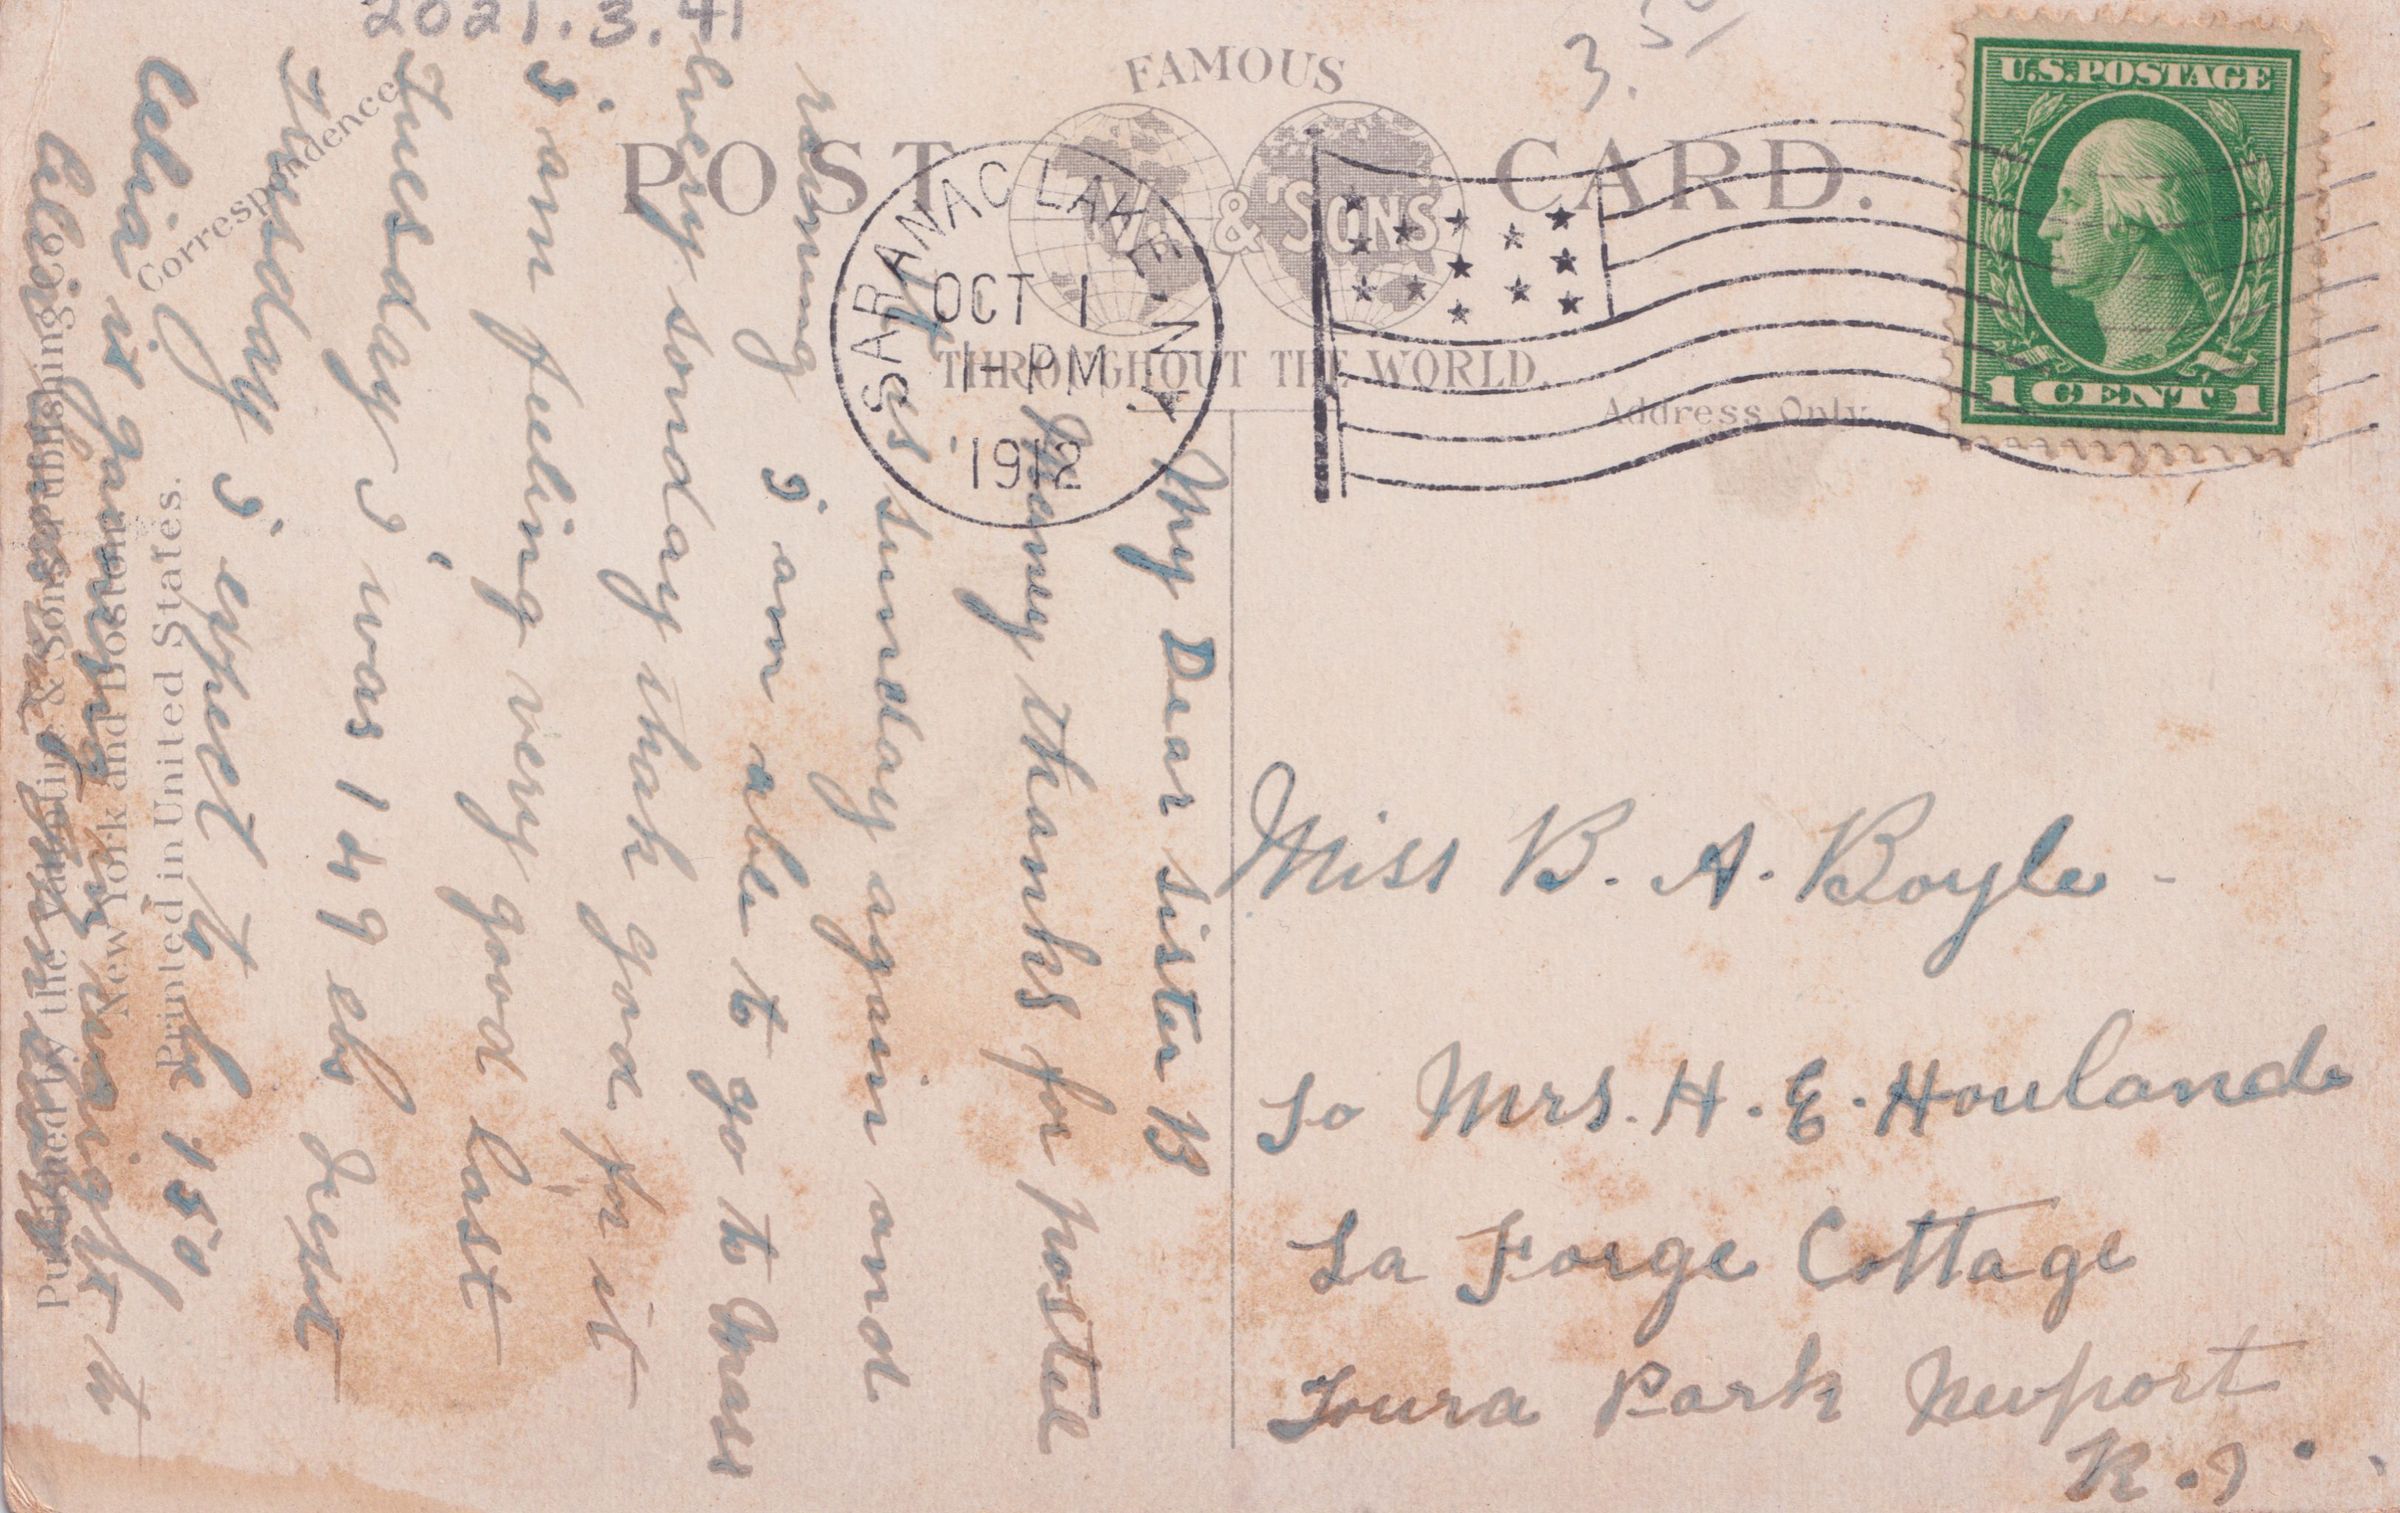 2021.3.41
3.
FAMOUS
POST CARD.
& SONS
THROUGHOUT THE WORLD.
Correspondence
Address Only
SARANAC LAKE, N.Y.
OCT 1
1-PM
1912
U.S. POSTAGE
1 CENT 1
My Dear sister B
Many thanks for postel
as sunday again and
raining i am able to go to mass
Every sonday thak god for it
i am feeling very good last
Tuesday i was 149 ebs
Tusday i expect to be 150
Celia is gaineing in waight
Miss B. A. Boyle -
To Mrs. H. E. Houland
La Forge Cottage
Toura Park Newport
R.I.
Published by the Valentine & Sons Publishing Co.
New York and Boston
Printed in United States.